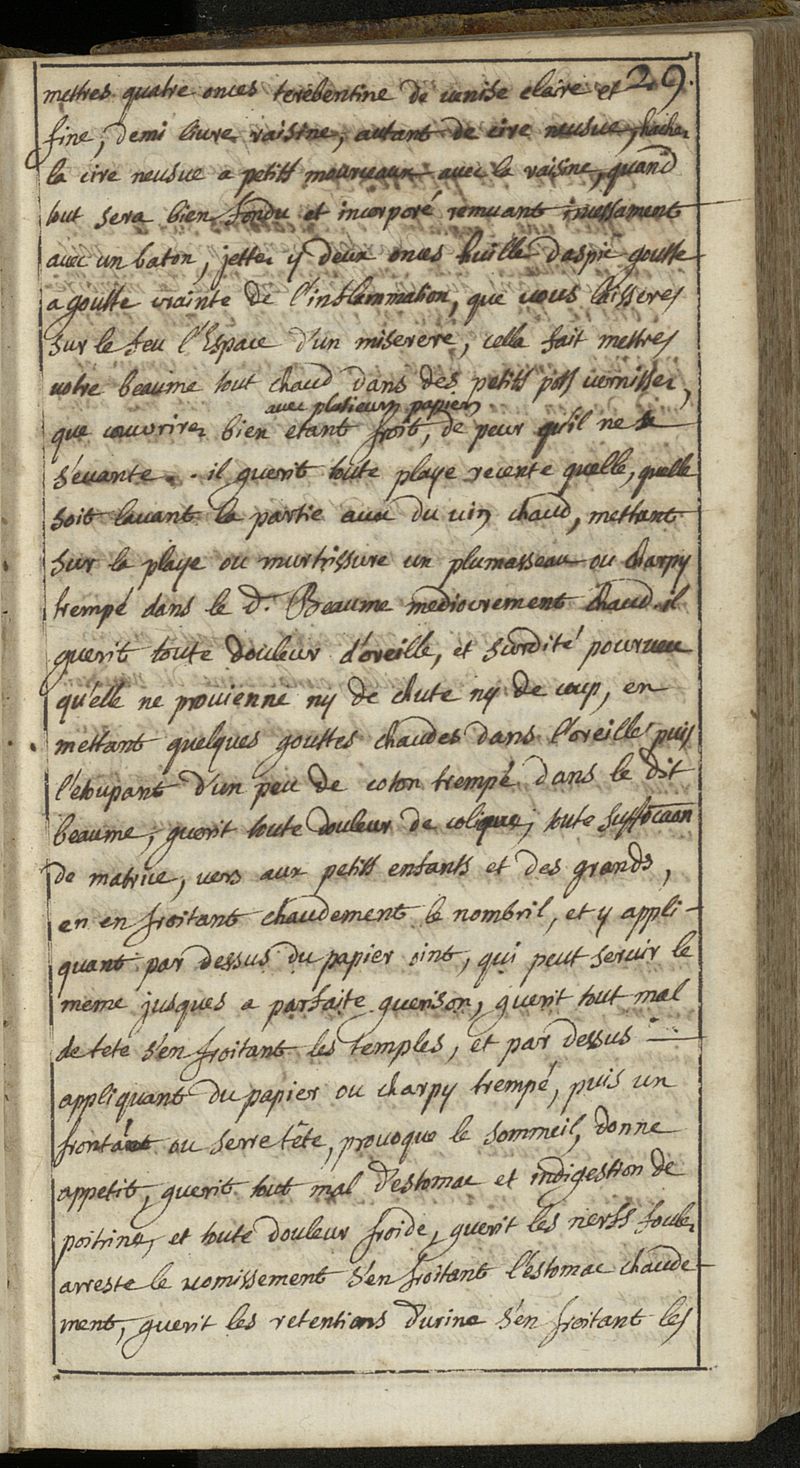 mettres quatre onces terébentine de venise claire et 29.
fine, demi livre raisine, autant de cire neusue, hachez
la cire neusue a petits mourceaux avec la raisine, quand
tout sera bien fondu et incorporé remuant incessament
avec un baton, jettez y deux onces huille d'aspic goutte
a goutte crainte de l'inflammation, que vous laisseres
sur le feu l'Espace d'un miserere, cella fait mettres
votre beaume tout chaud dans des petits pots vernissez,
avec plusieurs papiers
que couvrirez bien etant froit, de peur qu'il ne
s'evante.. il guerit toute playe recente quelle, quelle
soit lavant la partie avec du vin chaud, mettant
sur la playe ou murtrissure un plumasseau ou charpy
trempé dans le d. Beaume mediocrement chaud. il
guerit toute douleur d'oreille, et surdité pourveu
qu'elle ne provienne ny de chute ny de coup, en
mettant quelques gouttes chaudes dans l'oreille puis
l'etoupant d'un peu de coton trempé dans le dit
beaume, guerit toute douleur de colique, toute suffocaon
de matrice, vers aux petits enfants et des grands,
en en froitant chaudement le nombril, et y appli-
quant par dessus du papier oint, qui peut servir le
meme jusques a parfaite guerison, guerit tout mal
de tete s'en froitant les temples, et par dessus
appliquant du papier ou charpy trempé, puis un
frontáet ou serre tête, provoque le sommeil, donne
appetit, guerit tout mal d'estomac et indigestion de
poitrine, et toute douleur froide, guerit les nerfs foulez
arreste le vomissement s'en froitant l'estomac chaude-
ment, guerit les retentions d'urine s'en froitant les